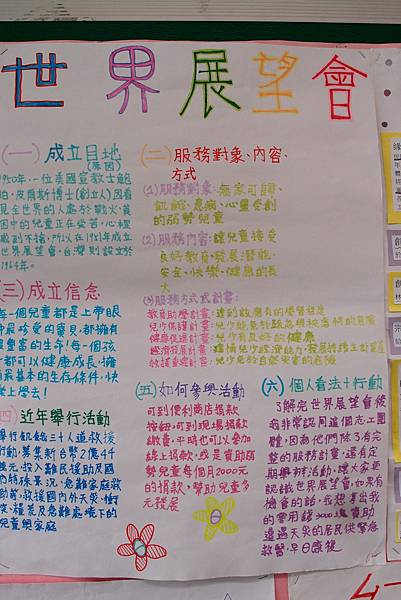 世界展望會
(一)成立目地
(原因)
1950年,一位美國宣教士鮑
伯‧皮爾斯博士(創立人)因看
見全世界的人處於戰火、貧
困中的兒童正在受苦,心裡
感到不捨,所以在1950年成立
世界展望會,台灣則設立於
1964年。
(二)服務對象、內容、
方式
(1)服務對象:無家可歸、
飢餓、患病、心靈受創
的弱勢兒童
(2)服務內容:讓兒童接受
良好教育、發展潛能、
安全、快樂、健康的長
大
(3)服務方式或計畫:
教育助學計畫:
兒少保護計畫:
健康促進計畫:兒少有良好的健康
經濟發展計畫:
(三)成立信念
每一個兒童都是上帝眼
中最珍愛的寶貝,都擁有
最豐富的生命!每個孩
子都可以健康成長,擁
有最基本的生存條件,快
樂上學去!
(四)近年舉行活動
舉行飢餓三十人道救援
行動,募集新台幣2億4千
萬元,投入難民援助及國
內特殊景況、急難家庭救
助、救援國內外天災、衝
突、糧荒及急難處境下的
兒童與家庭
(五)如何參與活動
可到便利商店捐款
按鈕,可到現場捐款
繳費,平時也可以參加
線上捐款,或是資助弱
勢兒童每個月2000元
的捐款,幫助兒童多
元發展
(六)個人看法+行動
了解完世界展望會後
我非常認同這個志工團
體,因為他們除了有完
整的服務計畫,還有定
期舉辦活動,讓大家更
認識世界展望會,如果有
機會的話,我想拿出我
的零用錢3000塊資助
遭遇天災的居民供緊急
救醫,早日康復